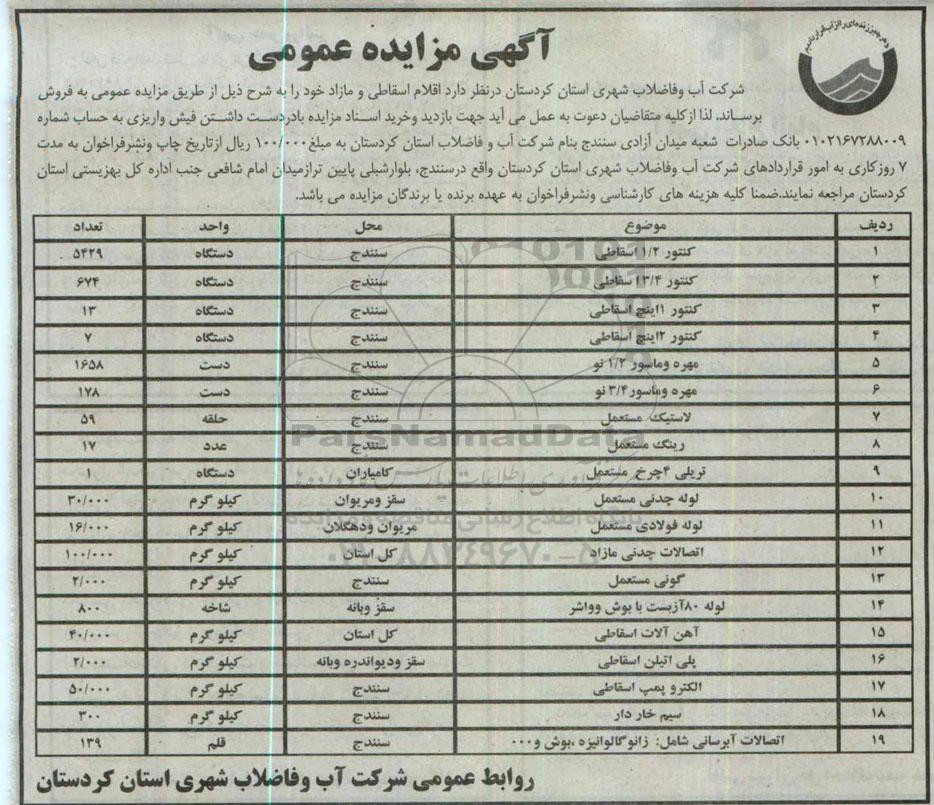 وهرچیز زنده‌ای را از آب قرار دادیم
آگهی مزایده عمومی
شرکت آب وفاضلاب شهری استان کردستان درنظر دارد اقلام اسقاطی و مازاد خود را به شرح ذیل از طریق مزایده عمومی به فروش
برساند. لذا ازکلیه متقاضیان دعوت به عمل می آید جهت بازدید وخرید اسناد مزایده بادردست داشتن فیش واریزی به حساب شماره
۰۱۰۲۱۶۷۲۸۸۰۰۹ بانک صادرات شعبه میدان آزادی سنندج بنام شرکت آب و فاضلاب استان کردستان به مبلغ ۱۰۰/۰۰۰ ریال ازتاریخ چاپ ونشرفراخوان به مدت
۷ روزکاری به امور قراردادهای شرکت آب وفاضلاب شهری استان کردستان واقع درسنندج، بلوارشبلی پایین ترازمیدان امام شافعی جنب اداره کل بهزیستی استان
کردستان مراجعه نمایند.ضمنا کلیه هزینه های کارشناسی ونشرفراخوان به عهده برنده یا برندگان مزایده می باشد.
ردیف موضوع محل واحد تعداد
۱ کنتور ۱/۲ اسقاطی سنندج دستگاه ۵۴۲۹
۲ کنتور ۳/۴ اسقاطی سنندج دستگاه ۶۷۴
۳ کنتور ۱اینچ اسقاطی سنندج دستگاه ۱۳
۴ کنتور ۲اینچ اسقاطی سنندج دستگاه ۷
۵ مهره وماسور ۱/۲ نو سنندج دست ۱۶۵۸
۶ مهره وماسور۳/۴ نو سنندج دست ۱۷۸
۷ لاستیک مستعمل سنندج حلقه ۵۹
۸ رینگ مستعمل سنندج عدد ۱۷
۹ تریلی ۴چرخ مستعمل کامیاران دستگاه ۱
۱۰ لوله چدنی مستعمل سقز ومریوان کیلو گرم ۳۰/۰۰۰
۱۱ لوله فولادی مستعمل مریوان ودهگلان کیلو گرم ۱۶/۰۰۰
۱۲ اتصالات چدنی مازاد کل استان کیلو گرم ۱۰۰/۰۰۰
۱۳ گونی مستعمل سنندج کیلو گرم ۲/۰۰۰
۱۴ لوله ۸۰آزبست با بوش وواشر سقز وبانه شاخه ۸۰۰
۱۵ آهن آلات اسقاطی کل استان کیلو گرم ۴۰/۰۰۰
۱۶ پلی اتیلن اسقاطی سقز ودیواندره وبانه کیلو گرم ۲/۰۰۰
۱۷ الکترو پمپ اسقاطی سنندج کیلو گرم ۵۰/۰۰۰
۱۸ سیم خار دار سنندج کیلو گرم ۳۰۰
۱۹ اتصالات آبرسانی شامل: زانوگالوانیزه ،بوش و۰۰۰ سنندج قلم ۱۳۹
ParsNamadData
پایگاه اطلاع رسانی مناقصه و مزایده
۰۲۱-۸۸۳۴۹۶۷۰-۵
روابط عمومی شرکت آب وفاضلاب شهری استان کردستان